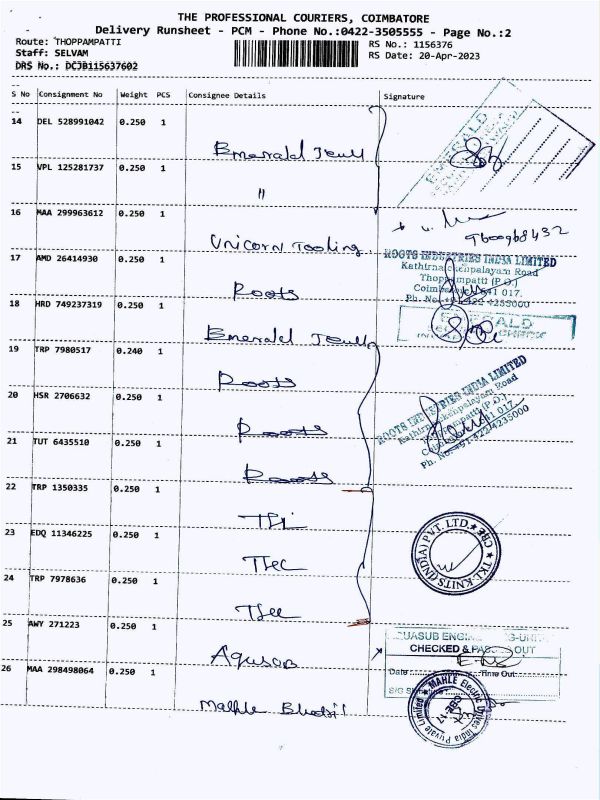 THE PROFESSIONAL COURIERS, COIMBATORE
Delivery Runsheet - PCM - Phone No.:0422-3505555 - Page No.:2
Route: THOPPAMPATTI
RS No.: 1156376
Staff: SELVAM
RS Date: 20-Apr-2023
DRS No.: DCJB115637602
S No Consignment No Weight PCS Consignee Details Signature
14 DEL 528991042 0.250 1
Emerald
EMERALD
15 VPL 125281737 0.250 1
"
16 MAA 299963612 0.250 1
Unicorn Tooling
9600968432
17 AMD 26414930 0.250 1
Roots
ROOTS INDUSTRIES INDIA LIMITED
Kathirnaickenpalayam Road
Thoppampatti (P.O.)
Coimbatore 641 017.
Ph. No. +91-422-4235000
18 HRD 749237319 0.250 1
Emerald
EMERALD
19 TRP 7980517 0.240 1
Roots
20 HSR 2706632 0.250 1
Roots
ROOTS INDUSTRIES INDIA LIMITED
Kathirnaickenpalayam Road
Thoppampatti (P.O.)
Coimbatore 641 017.
Ph. No. +91-422-4235000
21 TUT 6435510 0.250 1
Roots
22 TRP 1350335 0.250 1
23 EDQ 11346225 0.250 1
TKI-KNITS (INDIA) PVT. LTD. ★ CBE ★
24 TRP 7978636 0.250 1
25 AWY 271223 0.250 1
Aqusab
CHECKED & PASSED OUT
Date Time Out
26 MAA 298498064 0.250 1
Mahle
MAHLE Electric Drives India Private Limited